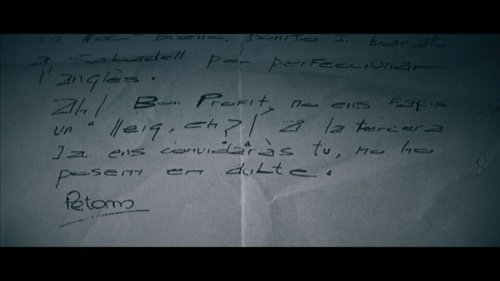 bueno, bonito I barato
a Sabadell per perfeccionar
l'anglès.
Ah! Bon Profit, no ens
un lleig, eh?! A la tercera
Ja ens convidaràs tu, no ho
posem en dubte.
Petons